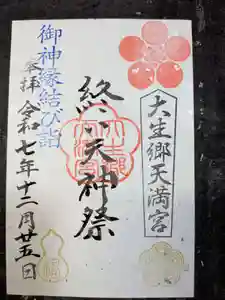 大生郷天満宮
終い天神祭
御神縁結び詣
奉拝 令和七年十二月廿五日